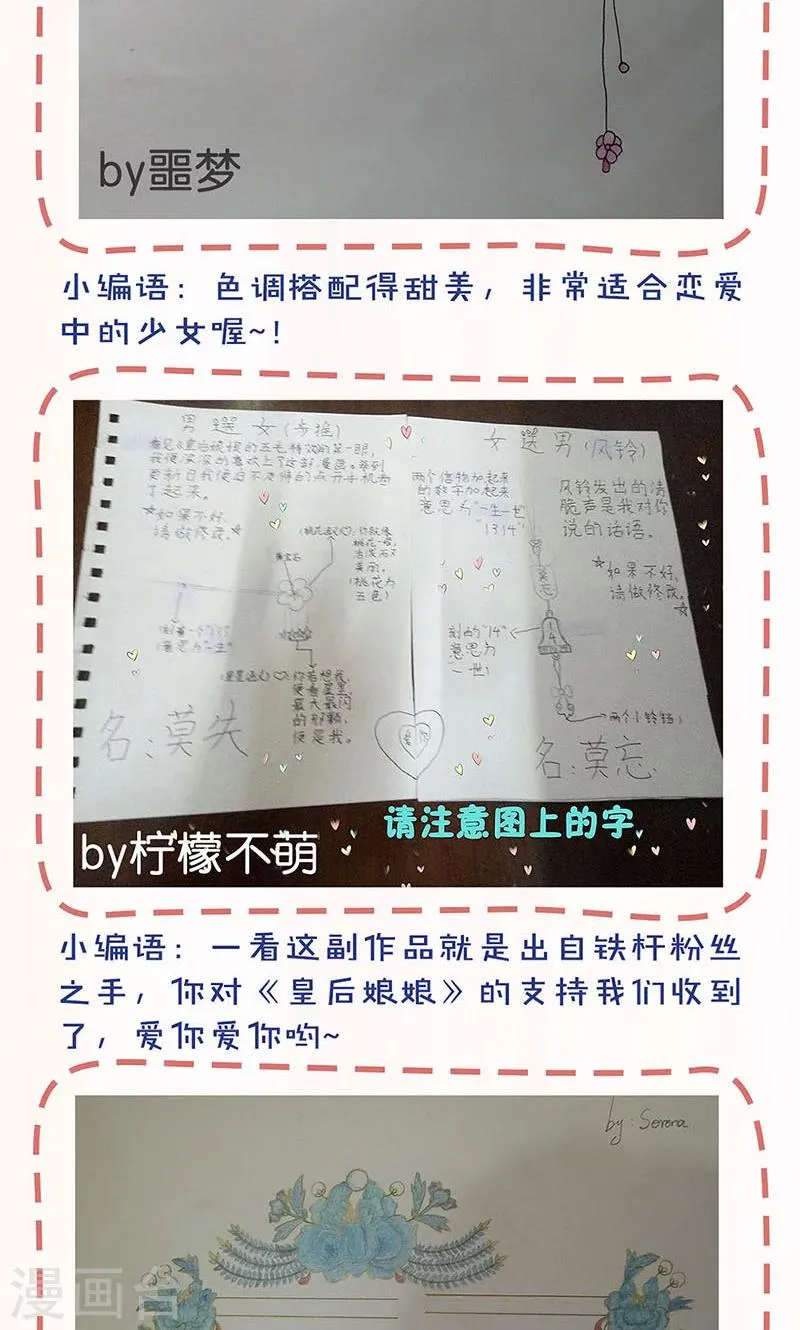 by噩梦
小编语：色调搭配得甜美，非常适合恋爱
中的少女喔~！
男選女(步摇)
看见《皇后娘娘的五毛特效的第一眼，
我便深深的喜欢上了这部漫画。每到
更新日我便迫不及待的点开手机看
了起来。
☆如果不好，
请做修改。☆
(桃花送心♡:你就像
桃花一般，
活泼而又
美丽。
(桃花为
五色)
黄宝石
意思为"一生"
(星星送心♡:你若想我，
便看星星，
最大最闪
的那颗，
便是我。
名:莫失
女選男(风铃)
两个信物加起来
的数字加起来
意思为"一生一世"
"1314"
风铃发出的清
脆声是我对你
说的话语。
☆如果不好，
请做修改。
☆
莫忘
刻的"14"
意思为
"一世"
14
两个小铃铛
名:莫忘
请注意图上的字
by柠檬不萌
小编语：一看这副作品就是出自铁杆粉丝
之手，你对《皇后娘娘》的支持我们收到
了，爱你爱你哟~
by:Serena.
漫画台